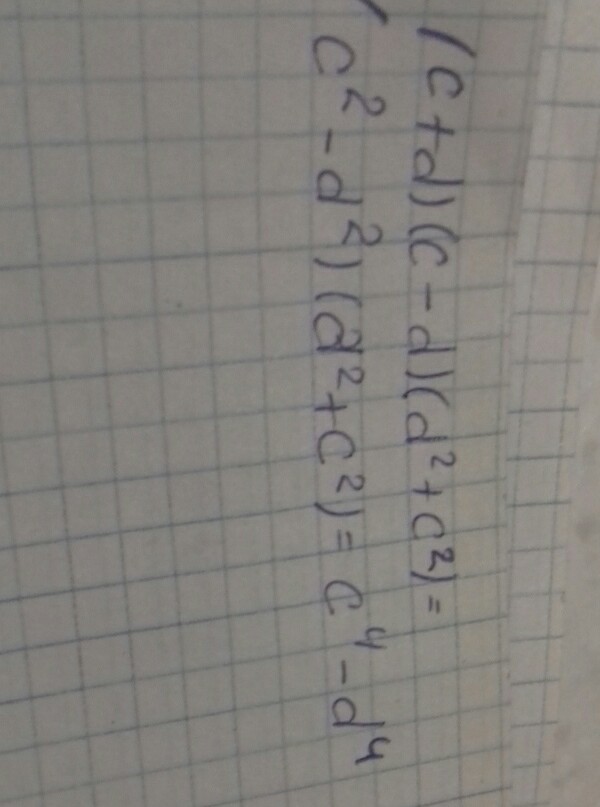 (c+d)(c-d)(d²+c²)=
(c²-d²)(d²+c²)=c⁴-d⁴